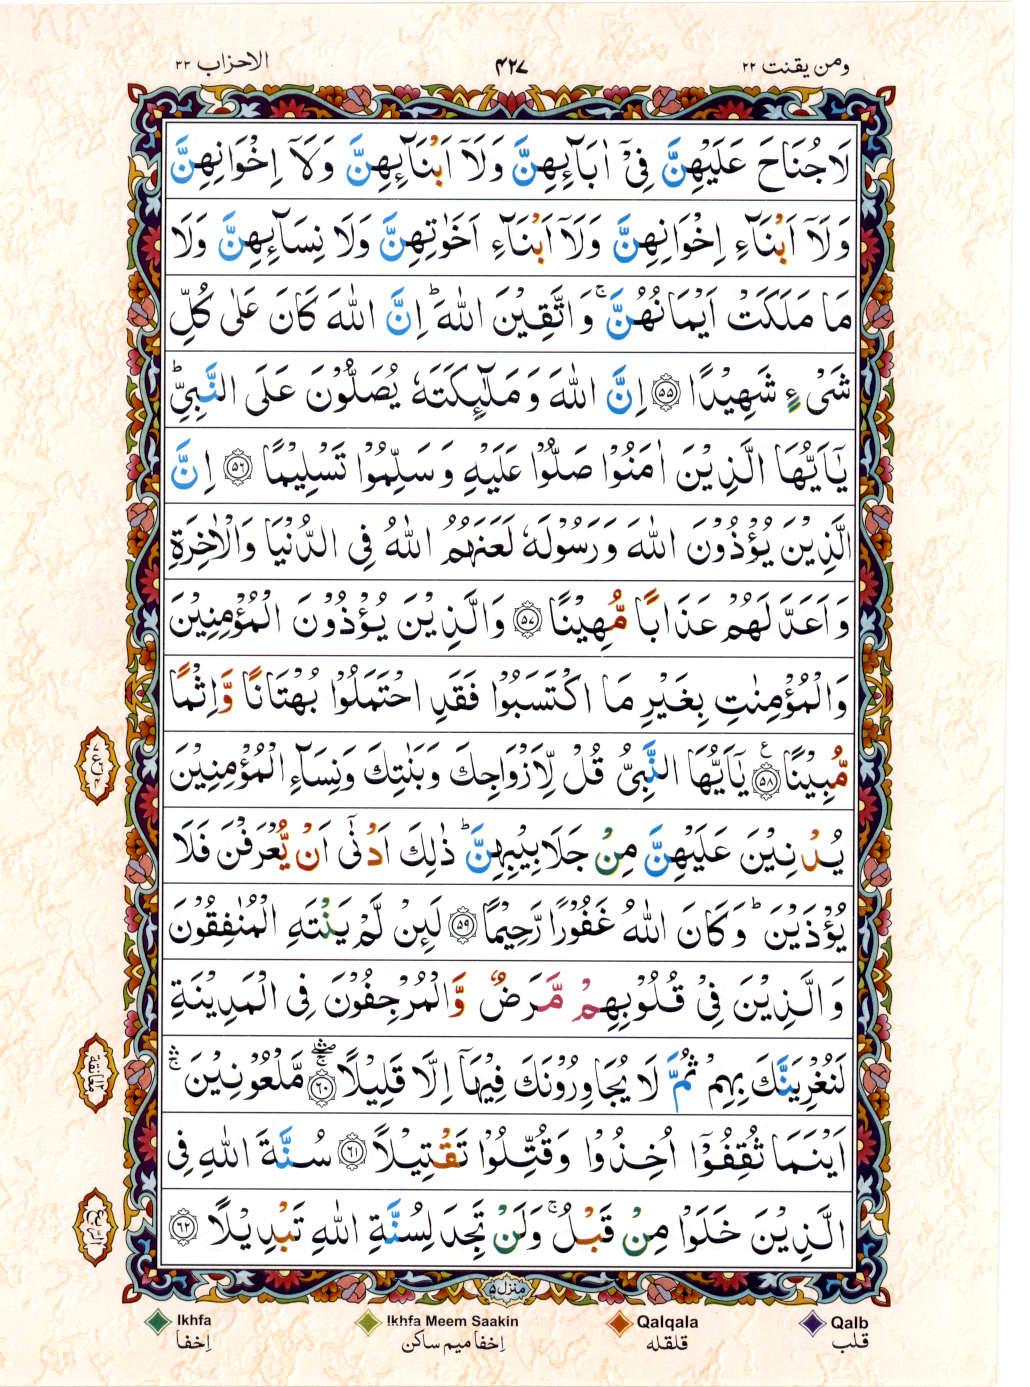 الاحزاب ٣٣
۴۲۷
ومن يقنت ٢٢
لَا جُنَاحَ عَلَيْهِنَّ فِىْٓ اٰبَآئِهِنَّ وَلَآ اَبْنَآئِهِنَّ وَلَآ اِخْوَانِهِنَّ
وَلَآ اَبْنَآءِ اِخْوَانِهِنَّ وَلَآ اَبْنَآءِ اَخَوٰتِهِنَّ وَلَا نِسَآئِهِنَّ وَلَا
مَا مَلَكَتْ اَيْمَانُهُنَّ ۚ وَاتَّقِيْنَ اللّٰهَ ؕ اِنَّ اللّٰهَ كَانَ عَلٰى كُلِّ
شَىْءٍ شَهِيْدًا ﴿۵۵﴾ اِنَّ اللّٰهَ وَمَلٰٓئِكَتَهٗ يُصَلُّوْنَ عَلَى النَّبِىِّ ؕ
يٰۤاَيُّهَا الَّذِيْنَ اٰمَنُوْا صَلُّوْا عَلَيْهِ وَسَلِّمُوْا تَسْلِيْمًا ﴿۵۶﴾ اِنَّ
الَّذِيْنَ يُؤْذُوْنَ اللّٰهَ وَرَسُوْلَهٗ لَعَنَهُمُ اللّٰهُ فِى الدُّنْيَا وَالْاٰخِرَةِ
وَاَعَدَّ لَهُمْ عَذَابًا مُّهِيْنًا ﴿۵۷﴾ وَالَّذِيْنَ يُؤْذُوْنَ الْمُؤْمِنِيْنَ
وَالْمُؤْمِنٰتِ بِغَيْرِ مَا اكْتَسَبُوْا فَقَدِ احْتَمَلُوْا بُهْتَانًا وَّاِثْمًا
مُّبِيْنًا ﴿۵۸﴾ ع يٰۤاَيُّهَا النَّبِىُّ قُلْ لِّاَزْوَاجِكَ وَبَنٰتِكَ وَنِسَآءِ الْمُؤْمِنِيْنَ
يُدْنِيْنَ عَلَيْهِنَّ مِنْ جَلَابِيْبِهِنَّ ؕ ذٰلِكَ اَدْنٰٓى اَنْ يُّعْرَفْنَ فَلَا
يُؤْذَيْنَ ؕ وَكَانَ اللّٰهُ غَفُوْرًا رَّحِيْمًا ﴿۵۹﴾ لَئِنْ لَّمْ يَنْتَهِ الْمُنٰفِقُوْنَ
وَالَّذِيْنَ فِىْ قُلُوْبِهِمْ مَّرَضٌ وَّالْمُرْجِفُوْنَ فِى الْمَدِيْنَةِ
لَنُغْرِيَنَّكَ بِهِمْ ثُمَّ لَا يُجَاوِرُوْنَكَ فِيْهَآ اِلَّا قَلِيْلًا ﴿۶۰﴾ مَّلْعُوْنِيْنَ ۛۚ
اَيْنَمَا ثُقِفُوْٓا اُخِذُوْا وَقُتِّلُوْا تَقْتِيْلًا ﴿۶۱﴾ سُنَّةَ اللّٰهِ فِى
الَّذِيْنَ خَلَوْا مِنْ قَبْلُ ۚ وَلَنْ تَجِدَ لِسُنَّةِ اللّٰهِ تَبْدِيْلًا ﴿۶۲﴾
معانقة
الربع
منزل ۵
Ikhfa
اِخفا
Ikhfa Meem Saakin
اِخفا ميم ساكن
Qalqala
قلقله
Qalb
قلب